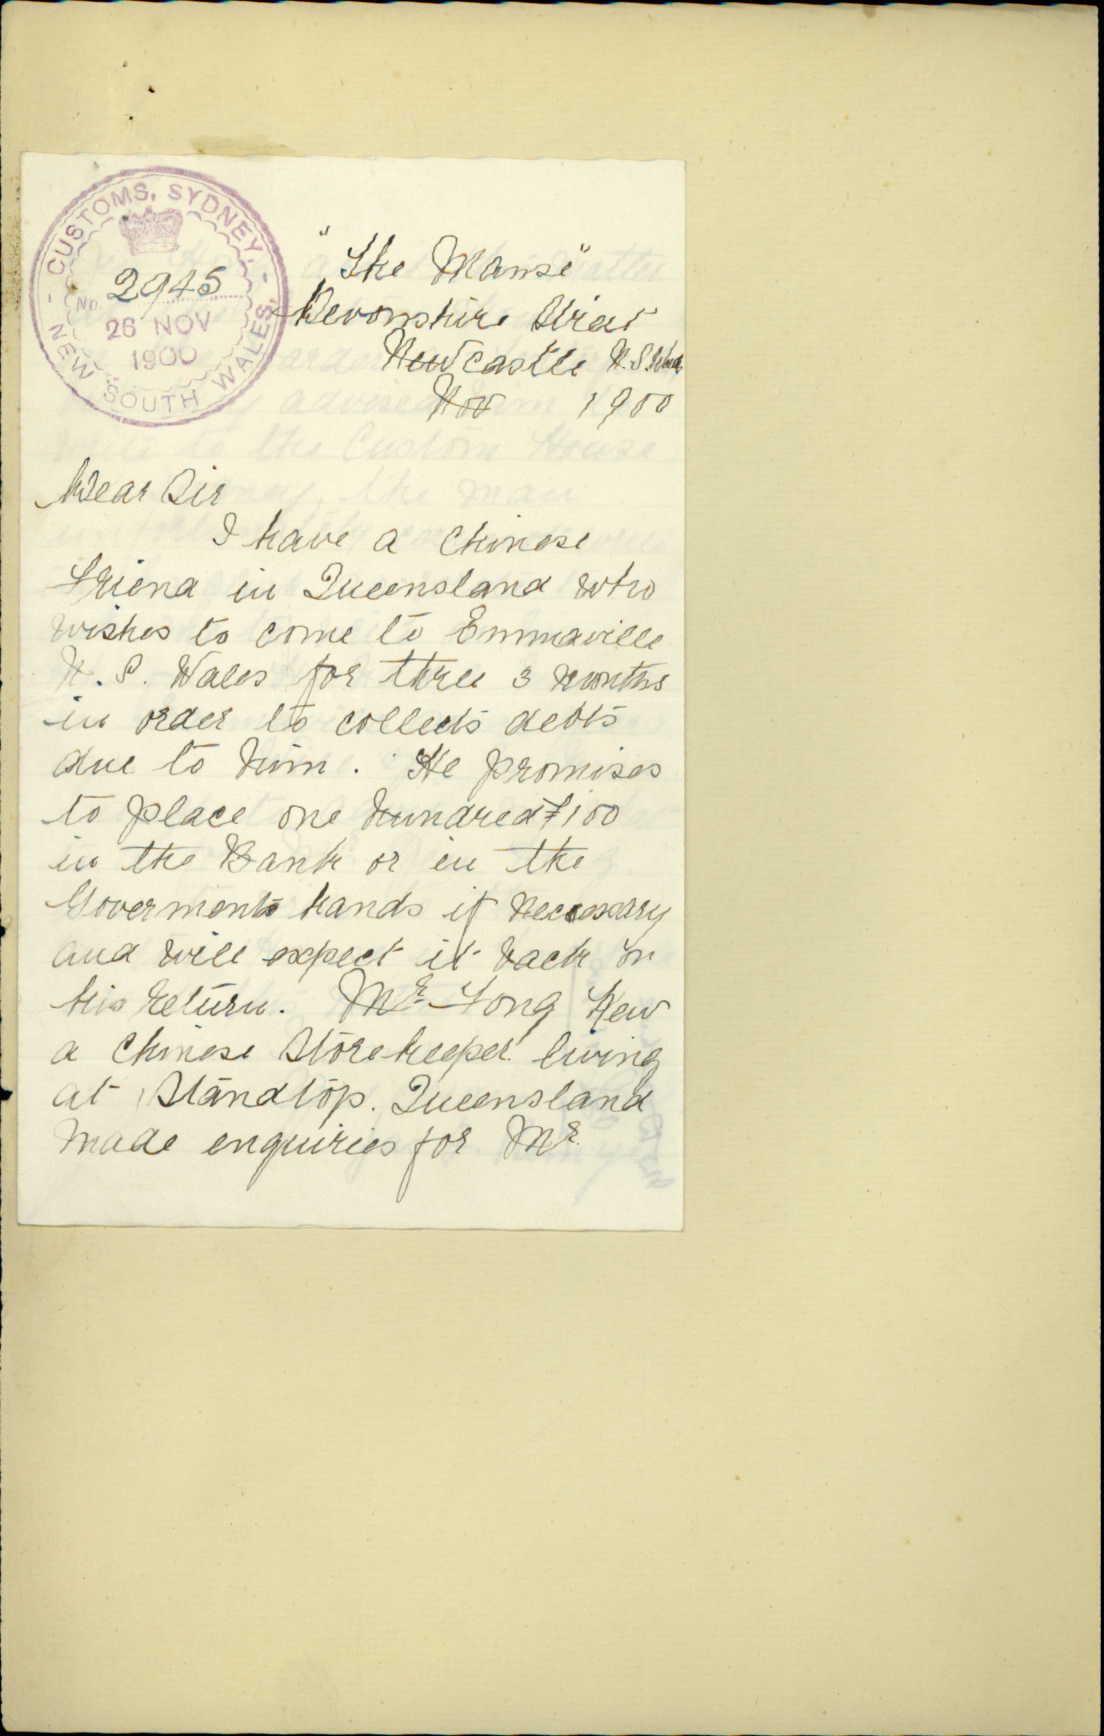 CUSTOMS, SYDNEY.
No. 2945
26 NOV
1900
NEW SOUTH WALES.
"The Manse"
Devonshire Street
Newcastle N.S.Wales
Nov 1900
Dear Sir
I have a Chinese
friend in Queensland who
wishes to come to Emmaville
N. S. Wales for three 3 months
in order to collects debts
due to him. He promises
to place one hundred £100
in the Bank or in the
Goverments hands if necessary
and will expect it back on
his return. Mr Fong Kew
a Chinese Storekeeper living
at Standtop. Queensland
made enquiries for Mr